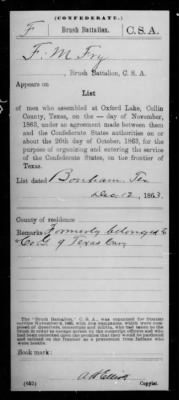 (CONFEDERATE.)
F Brush Battalion. C.S.A.
F. M. Fry
, Brush Battalion, C. S. A.
Appears on
List
of men who assembled at Oxford Lake, Collin
County, Texas, on the — day of November,
1863, under an agreement made between them
and the Confederate States authorities on or
about the 20th day of October, 1863, for the
purpose of organizing and entering the service
of the Confederate States, on the frontier of
Texas.
List dated Bonham Tex
Dec 12, 1863.
County of residence
Remarks: Formerly belonged to
Co. G 9 Texas Cav
The "Brush Battalion," C. S. A., was organized for frontier
Book mark:
A. H. Elliott
(652) Copyist.